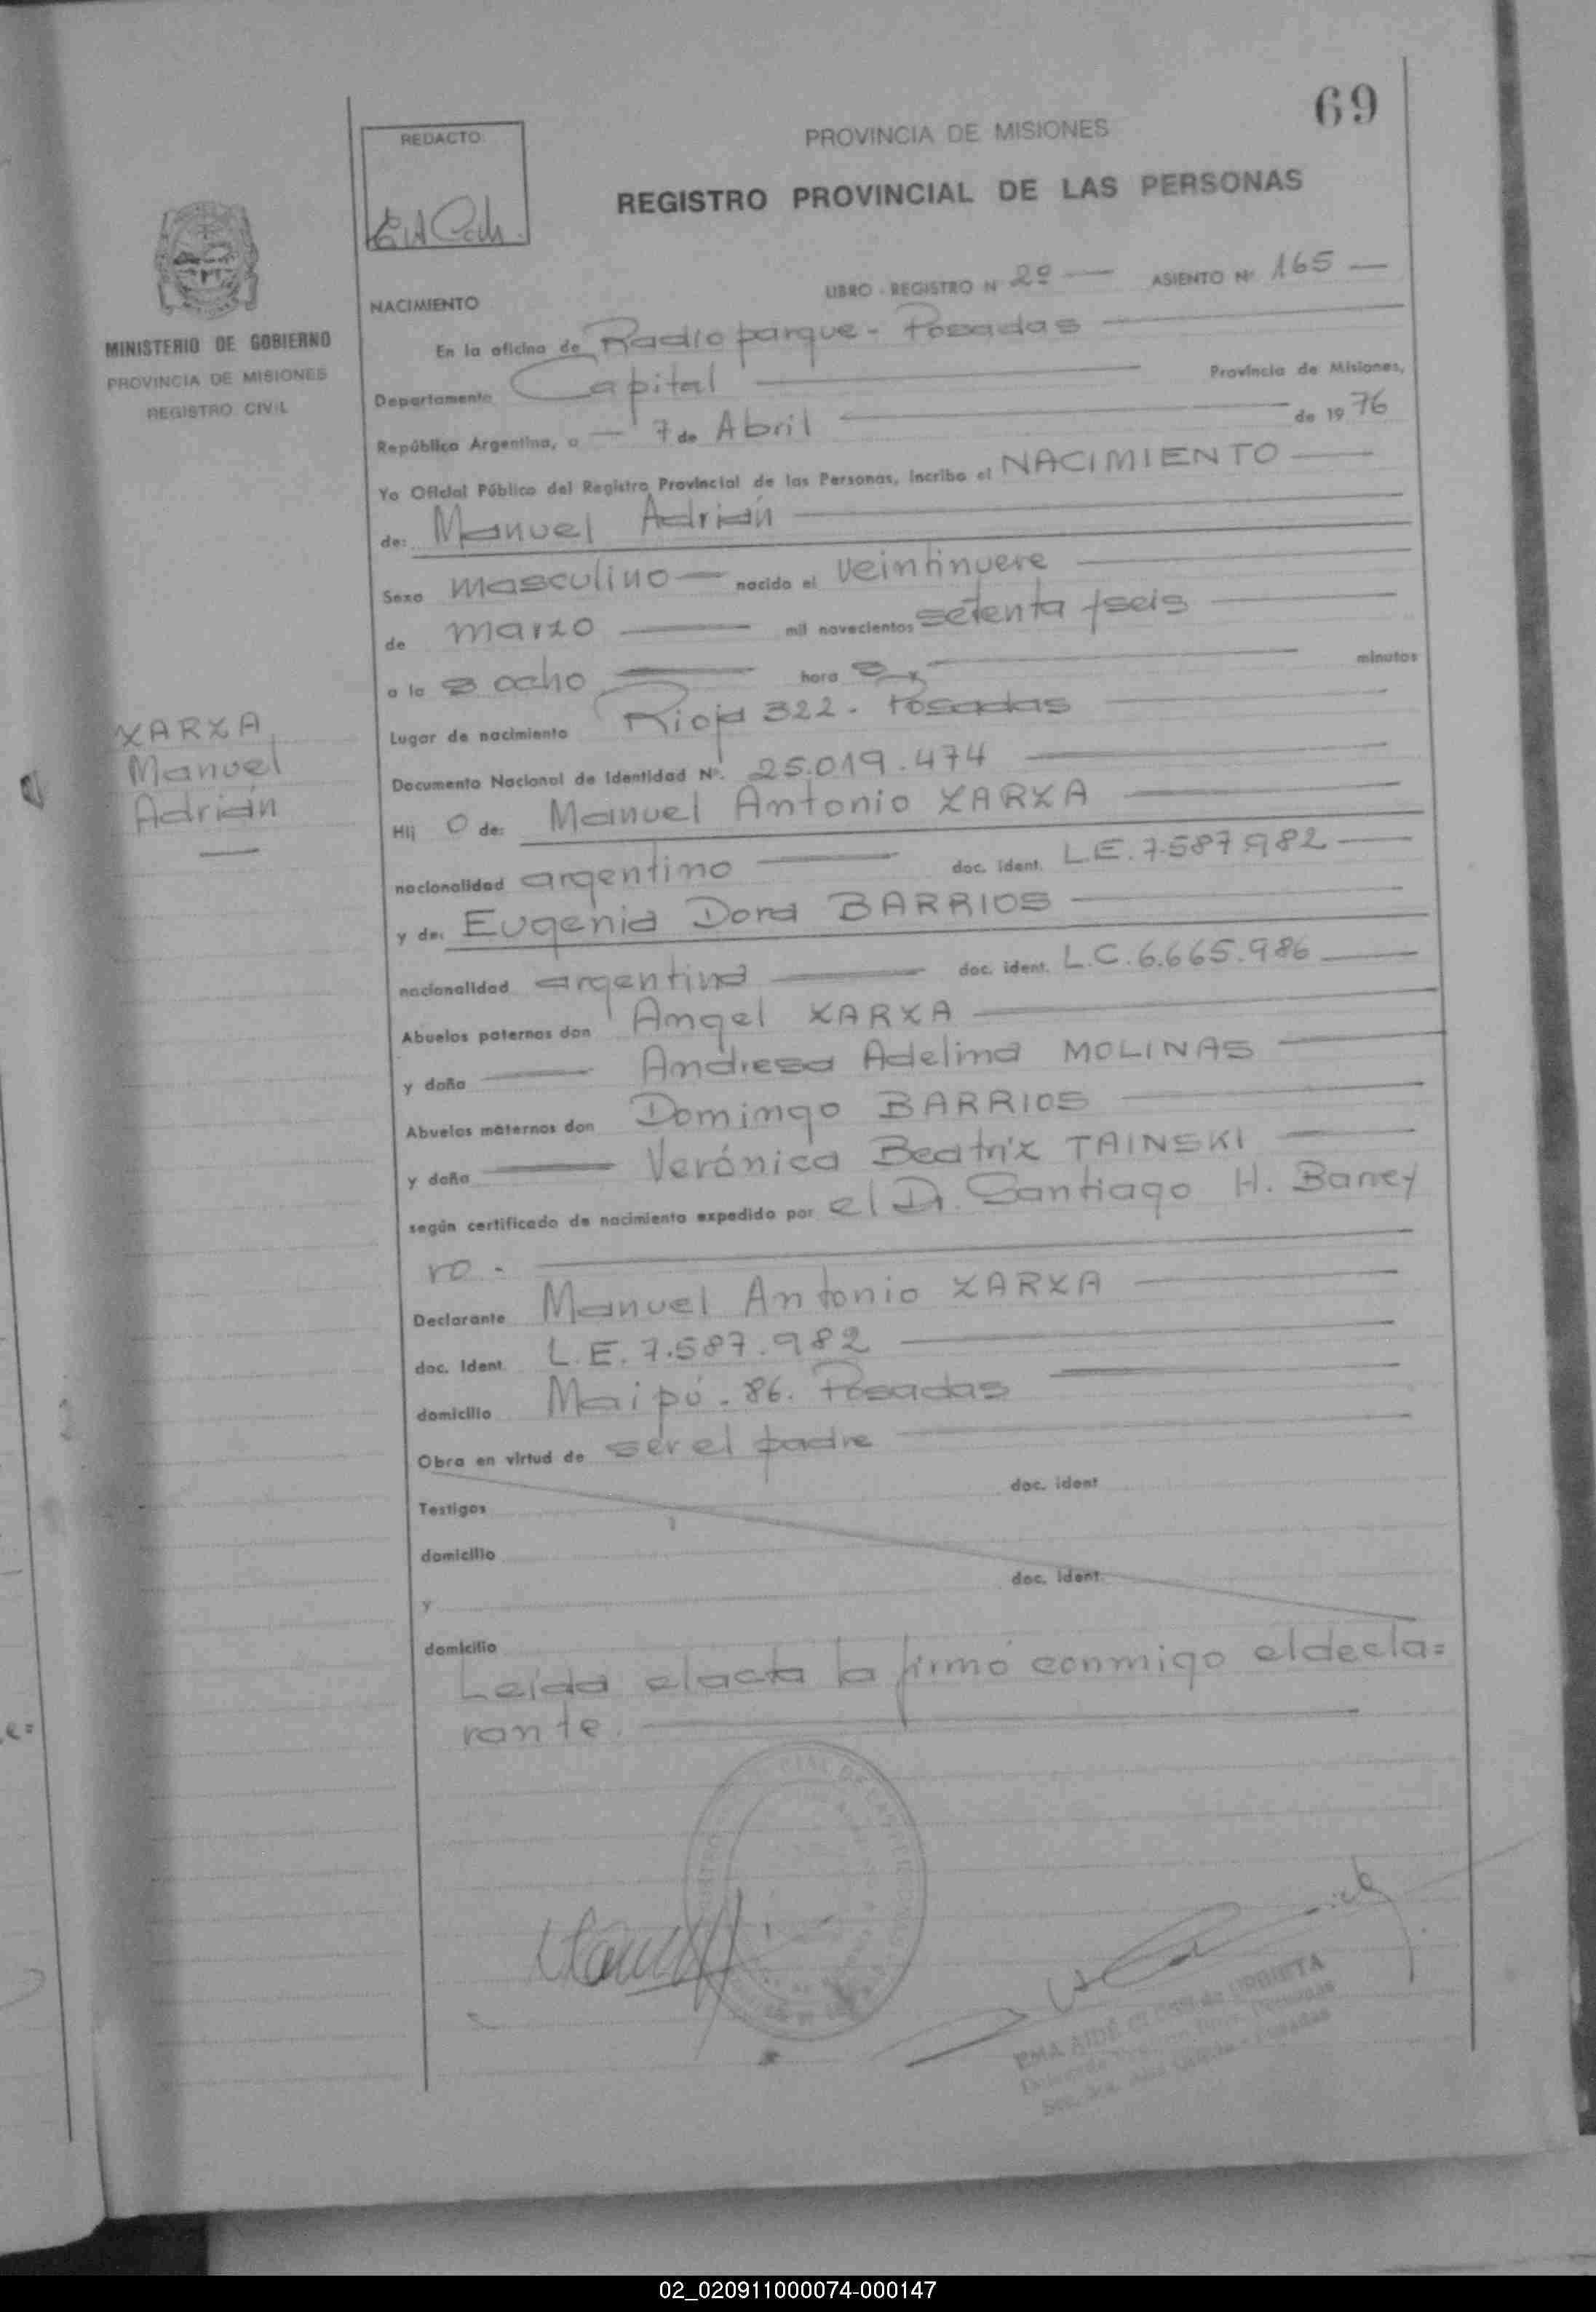 69
REDACTO
PROVINCIA DE MISIONES
REGISTRO PROVINCIAL DE LAS PERSONAS
MINISTERIO DE GOBIERNO
PROVINCIA DE MISIONES
REGISTRO CIVIL
LIBRO - REGISTRO N 2º — ASIENTO Nº 165 —
NACIMIENTO
En la oficina de Radioparque - Posadas
Departamento Capital Provincia de Misiones,
República Argentina, a — 7 de Abril de 19 76
Yo Oficial Público del Registro Provincial de las Personas, incribo el NACIMIENTO
de: Manuel Adrián
Sexo masculino — nacido el veintinueve
de marzo mil novecientos setenta y seis
a la s ocho hora s minutos
Lugar de nacimiento Rioja 322 - Posadas
XARXA
Manuel
Adrián
Documento Nacional de Identidad Nº. 25.019.474
Hij o de: Manuel Antonio XARXA
nacionalidad argentino doc. ident. L.E. 7.587.982
y de: Eugenia Dora BARRIOS
nacionalidad argentina doc. ident. L.C. 6.665.986
Abuelos paternos don Angel XARXA
y doña Andresa Adelina MOLINAS
Abuelos maternos don Domingo BARRIOS
y doña Verónica Beatriz TAINSKI
según certificado de nacimiento expedido por el Dr. Santiago H. Barrey
ro.
Declarante Manuel Antonio XARXA
doc. Ident. L.E. 7.587.982
domicilio Maipú - 86. Posadas
Obra en virtud de ser el padre
doc. ident
Testigos
domicilio
doc. ident.
y
domicilio
Leída el acta la firmó conmigo el decla=
rante.
02_020911000074-000147